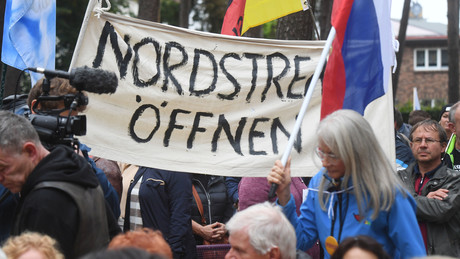 NORDSTRE
ÖFFNEN